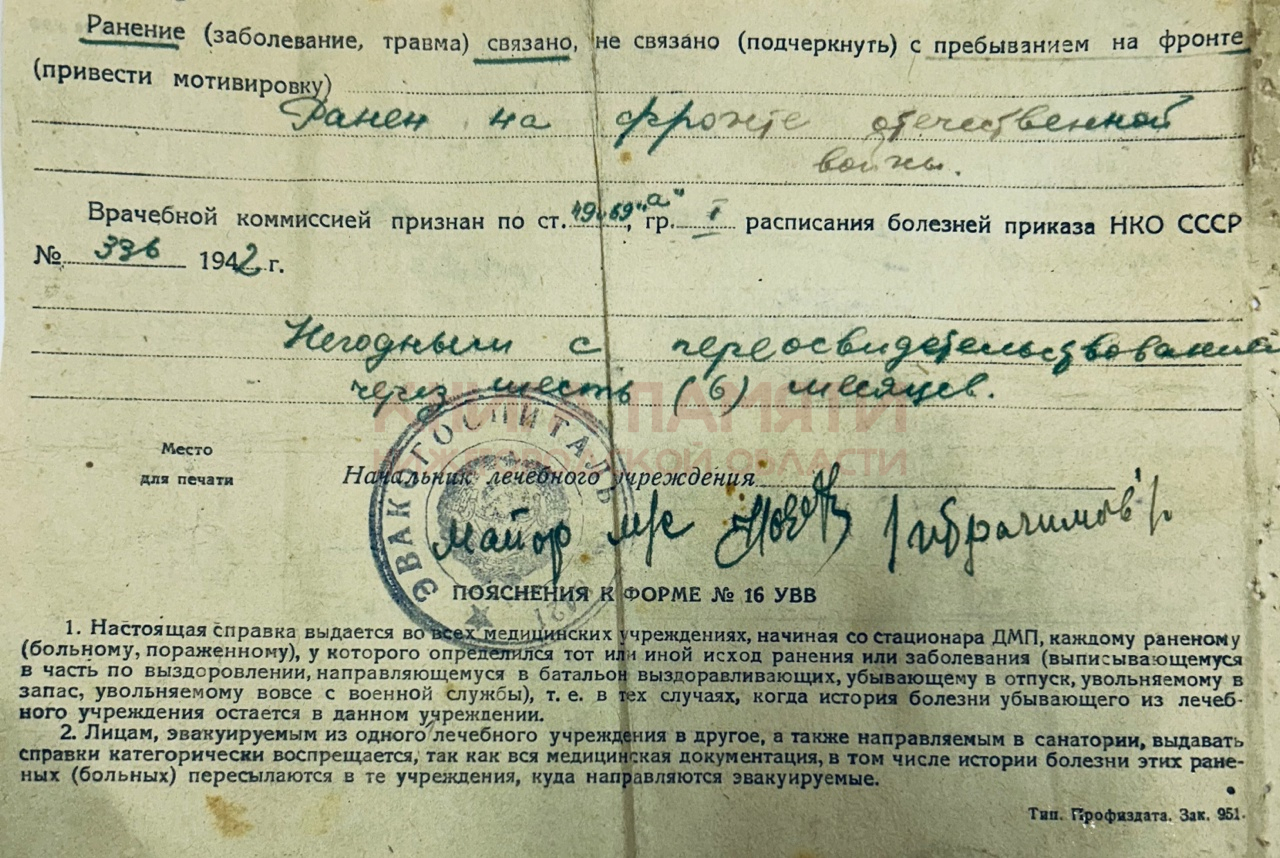 Ранение (заболевание, травма) связано, не связано (подчеркнуть) с пребыванием на фронте
(привести мотивировку)
Ранен на фронте отечественной
войны.
Врачебной комиссией признан по ст. 19 и 69 "а", гр. I расписания болезней приказа НКО СССР
№ 336 1942 г.
Негодным с переосвидетельствованием
через шесть (6) месяцев.
КНИГА ПАМЯТИ
НИЖЕГОРОДСКОЙ ОБЛАСТИ
Место
для печати
ЭВАКОГОСПИТАЛЬ
Начальник лечебного учреждения
Майор м/с /Ибрагимов/
ПОЯСНЕНИЯ К ФОРМЕ № 16 УВВ
1. Настоящая справка выдается во всех медицинских учреждениях, начиная со стационара ДМП, каждому раненому
(больному, пораженному), у которого определился тот или иной исход ранения или заболевания (выписывающемуся
в часть по выздоровлении, направляющемуся в батальон выздоравливающих, убывающему в отпуск, увольняемому в
запас, увольняемому вовсе с военной службы), т. е. в тех случаях, когда история болезни убывающего из лечеб-
ного учреждения остается в данном учреждении.
2. Лицам, эвакуируемым из одного лечебного учреждения в другое, а также направляемым в санатории, выдавать
справки категорически воспрещается, так как вся медицинская документация, в том числе истории болезни этих ране-
ных (больных) пересылаются в те учреждения, куда направляются эвакуируемые.
Тип. Профиздата. Зак. 951.